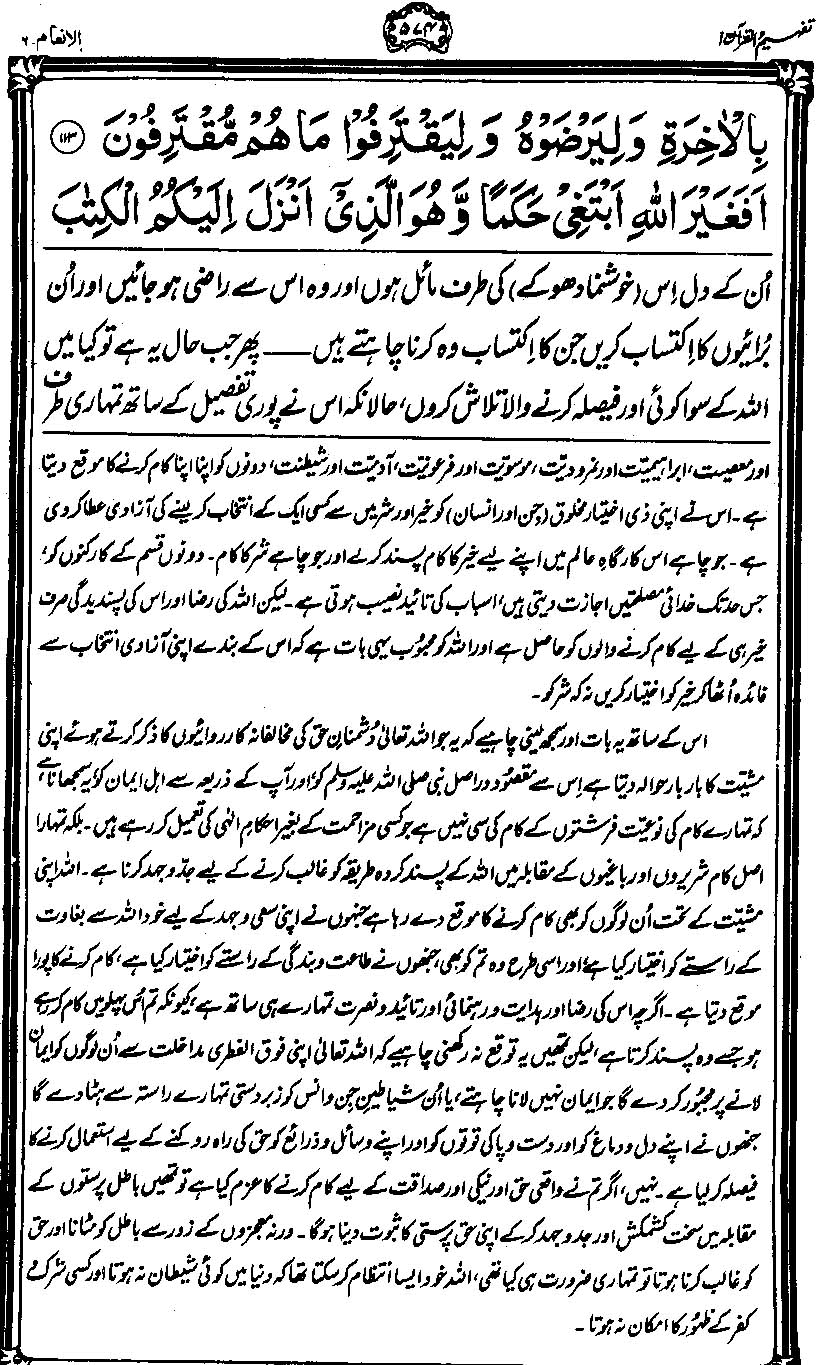 تفہیم القرآن ۱
۵۷۴
الانعام ۶
بِالْاٰخِرَةِ وَلِيَرْضَوْهُ وَلِيَقْتَرِفُوْا مَا هُمْ مُّقْتَرِفُوْنَ ﴿۱۱۳﴾
اَفَغَيْرَ اللّٰهِ اَبْتَغِيْ حَكَمًا وَّهُوَ الَّذِيْٓ اَنْزَلَ اِلَيْكُمُ الْكِتٰبَ
اُن کے دل اِس (خوشنما دھوکے) کی طرف مائل ہوں اور وہ اس سے راضی ہو جائیں اور اُن
بُرائیوں کا اِکتساب کریں جن کا اِکتساب وہ کرنا چاہتے ہیں ــــــ پھر جب حال یہ ہے تو کیا میں
اللہ کے سوا کوئی اور فیصلہ کرنے والا تلاش کروں، حالانکہ اس نے پوری تفصیل کے ساتھ تمہاری طرف
اور معصیت، ابراہیمیّت اور نمرودیّت، موسویّت اور فرعونیّت، آدمیّت اور شیطنت، دونوں کو اپنا اپنا کام کرنے کا موقع دیتا
ہے۔ اس نے اپنی ذی اختیار مخلوق (جن اور انسان) کو خیر اور شر میں سے کسی ایک کے انتخاب کر لینے کی آزادی عطا کر دی
ہے۔ جو چاہے اس کارگاہِ عالم میں اپنے لیے خیر کا کام پسند کرلے اور جو چاہے شر کا کام۔ دونوں قسم کے کارکنوں کو،
جس حد تک خدائی مصلحتیں اجازت دیتی ہیں، اسباب کی تائید نصیب ہوتی ہے۔ لیکن اللہ کی رضا اور اس کی پسندیدگی صرف
خیر ہی کے لیے کام کرنے والوں کو حاصل ہے اور اللہ کو محبوب یہی بات ہے کہ اس کے بندے اپنی آزادی انتخاب سے
فائدہ اُٹھا کر خیر کو اختیار کریں نہ کہ شر کو۔
اس کے ساتھ یہ بات اور سمجھ لینی چاہیے کہ یہ جو اللہ تعالیٰ دُشمنانِ حق کی مخالفانہ کارروائیوں کا ذکر کرتے ہوئے اپنی
مشیّت کا بار بار حوالہ دیتا ہے اِس سے مقصُود دراصل نبی صلی اللہ علیہ وسلم کو، اور آپ کے ذریعہ سے اہل ایمان کو، یہ سمجھانا ہے،
کہ تمہارے کام کی نوعیّت فرشتوں کے کام کی سی نہیں ہے جو کسی مزاحمت کے بغیر احکام الٰہی کی تعمیل کر رہے ہیں۔ بلکہ تمہارا
اصل کام شریروں اور باغیوں کے مقابلہ میں اللہ کے پسند کردہ طریقہ کو غالب کرنے کے لیے جدّوجہد کرنا ہے۔ اللہ اپنی
مشیّت کے تحت اُن لوگوں کو بھی کام کرنے کا موقع دے رہا ہے جنہوں نے اپنی سعی و جہد کے لیے خود اللہ سے بغاوت
کے راستے کو اختیار کیا ہے، اور اسی طرح وہ تم کو بھی، جنھوں نے طاعت و بندگی کے راستے کو اختیار کیا ہے، کام کرنے کا پورا
موقع دیتا ہے۔ اگرچہ اس کی رضا اور ہدایت و رہنمائی اور تائید و نصرت تمہارے ہی ساتھ ہے، کیونکہ تم اُس پہلو میں کام کر رہے
ہو جسے وہ پسند کرتا ہے، لیکن تمھیں یہ توقع نہ رکھنی چاہیے کہ اللہ تعالیٰ اپنی فوق الفطری مداخلت سے اُن لوگوں کو ایمان
لانے پر مجبور کر دے گا جو ایمان نہیں لانا چاہتے، یا اُن شیاطین جن و انس کو زبردستی تمہارے راستہ سے ہٹا دے گا
جنھوں نے اپنے دل و دماغ کو اور دست و پا کی قوتوں کو اور اپنے وسائل و ذرائع کو حق کی راہ روکنے کے لیے استعمال کرنے کا
فیصلہ کر لیا ہے۔ نہیں، اگر تم نے واقعی حق اور نیکی اور صداقت کے لیے کام کرنے کا عزم کیا ہے تو تمھیں باطل پرستوں کے
مقابلہ میں سخت کشمکش اور جدوجہد کرکے اپنی حق پرستی کا ثبوت دینا ہوگا۔ ورنہ معجزوں کے زور سے باطل کو مٹانا اور حق
کو غالب کرنا ہوتا تو تمہاری ضرورت ہی کیا تھی، اللہ خود ایسا انتظام کر سکتا تھا کہ دنیا میں کوئی شیطان نہ ہوتا اور کسی شرک و
کفر کے ظہُور کا امکان نہ ہوتا۔